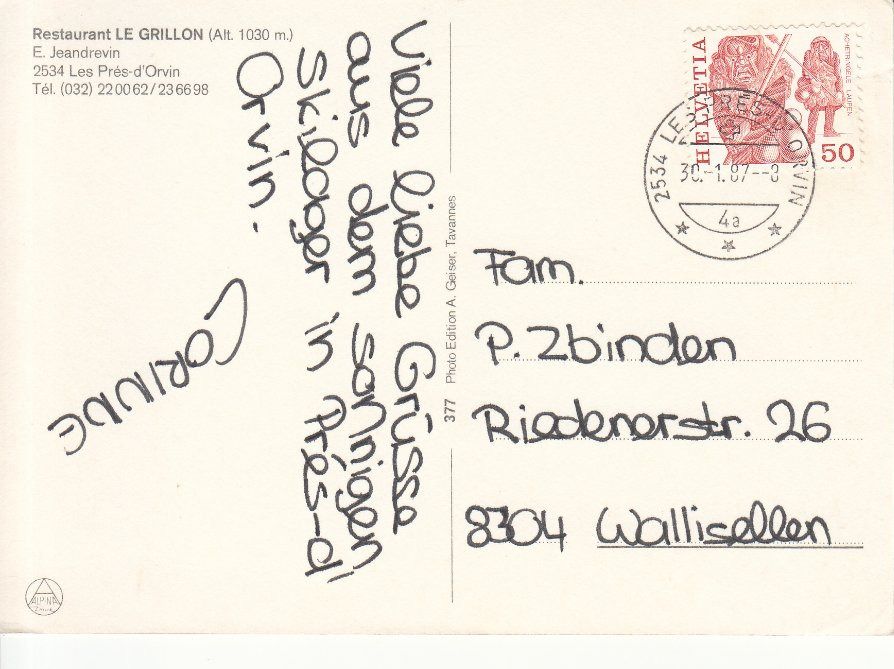 Restaurant LE GRILLON (Alt. 1030 m.)
E. Jeandrevin
2534 Les Prés-d'Orvin
Tél. (032) 22 00 62 / 23 66 98
Viele liebe Grüsse
aus dem sonnigen
Skilager in Prés-d'
Orvin.
CORINNE
377 Photo Edition A. Geiser, Tavannes
HELVETIA
ACHETRINGELE LAUPEN
50
2534 LES PRES-D'ORVIN
30.-1.87--8
4a
Fam.
P. Zbinden
Riedenerstr. 26
8304 Wallisellen
ALPINA